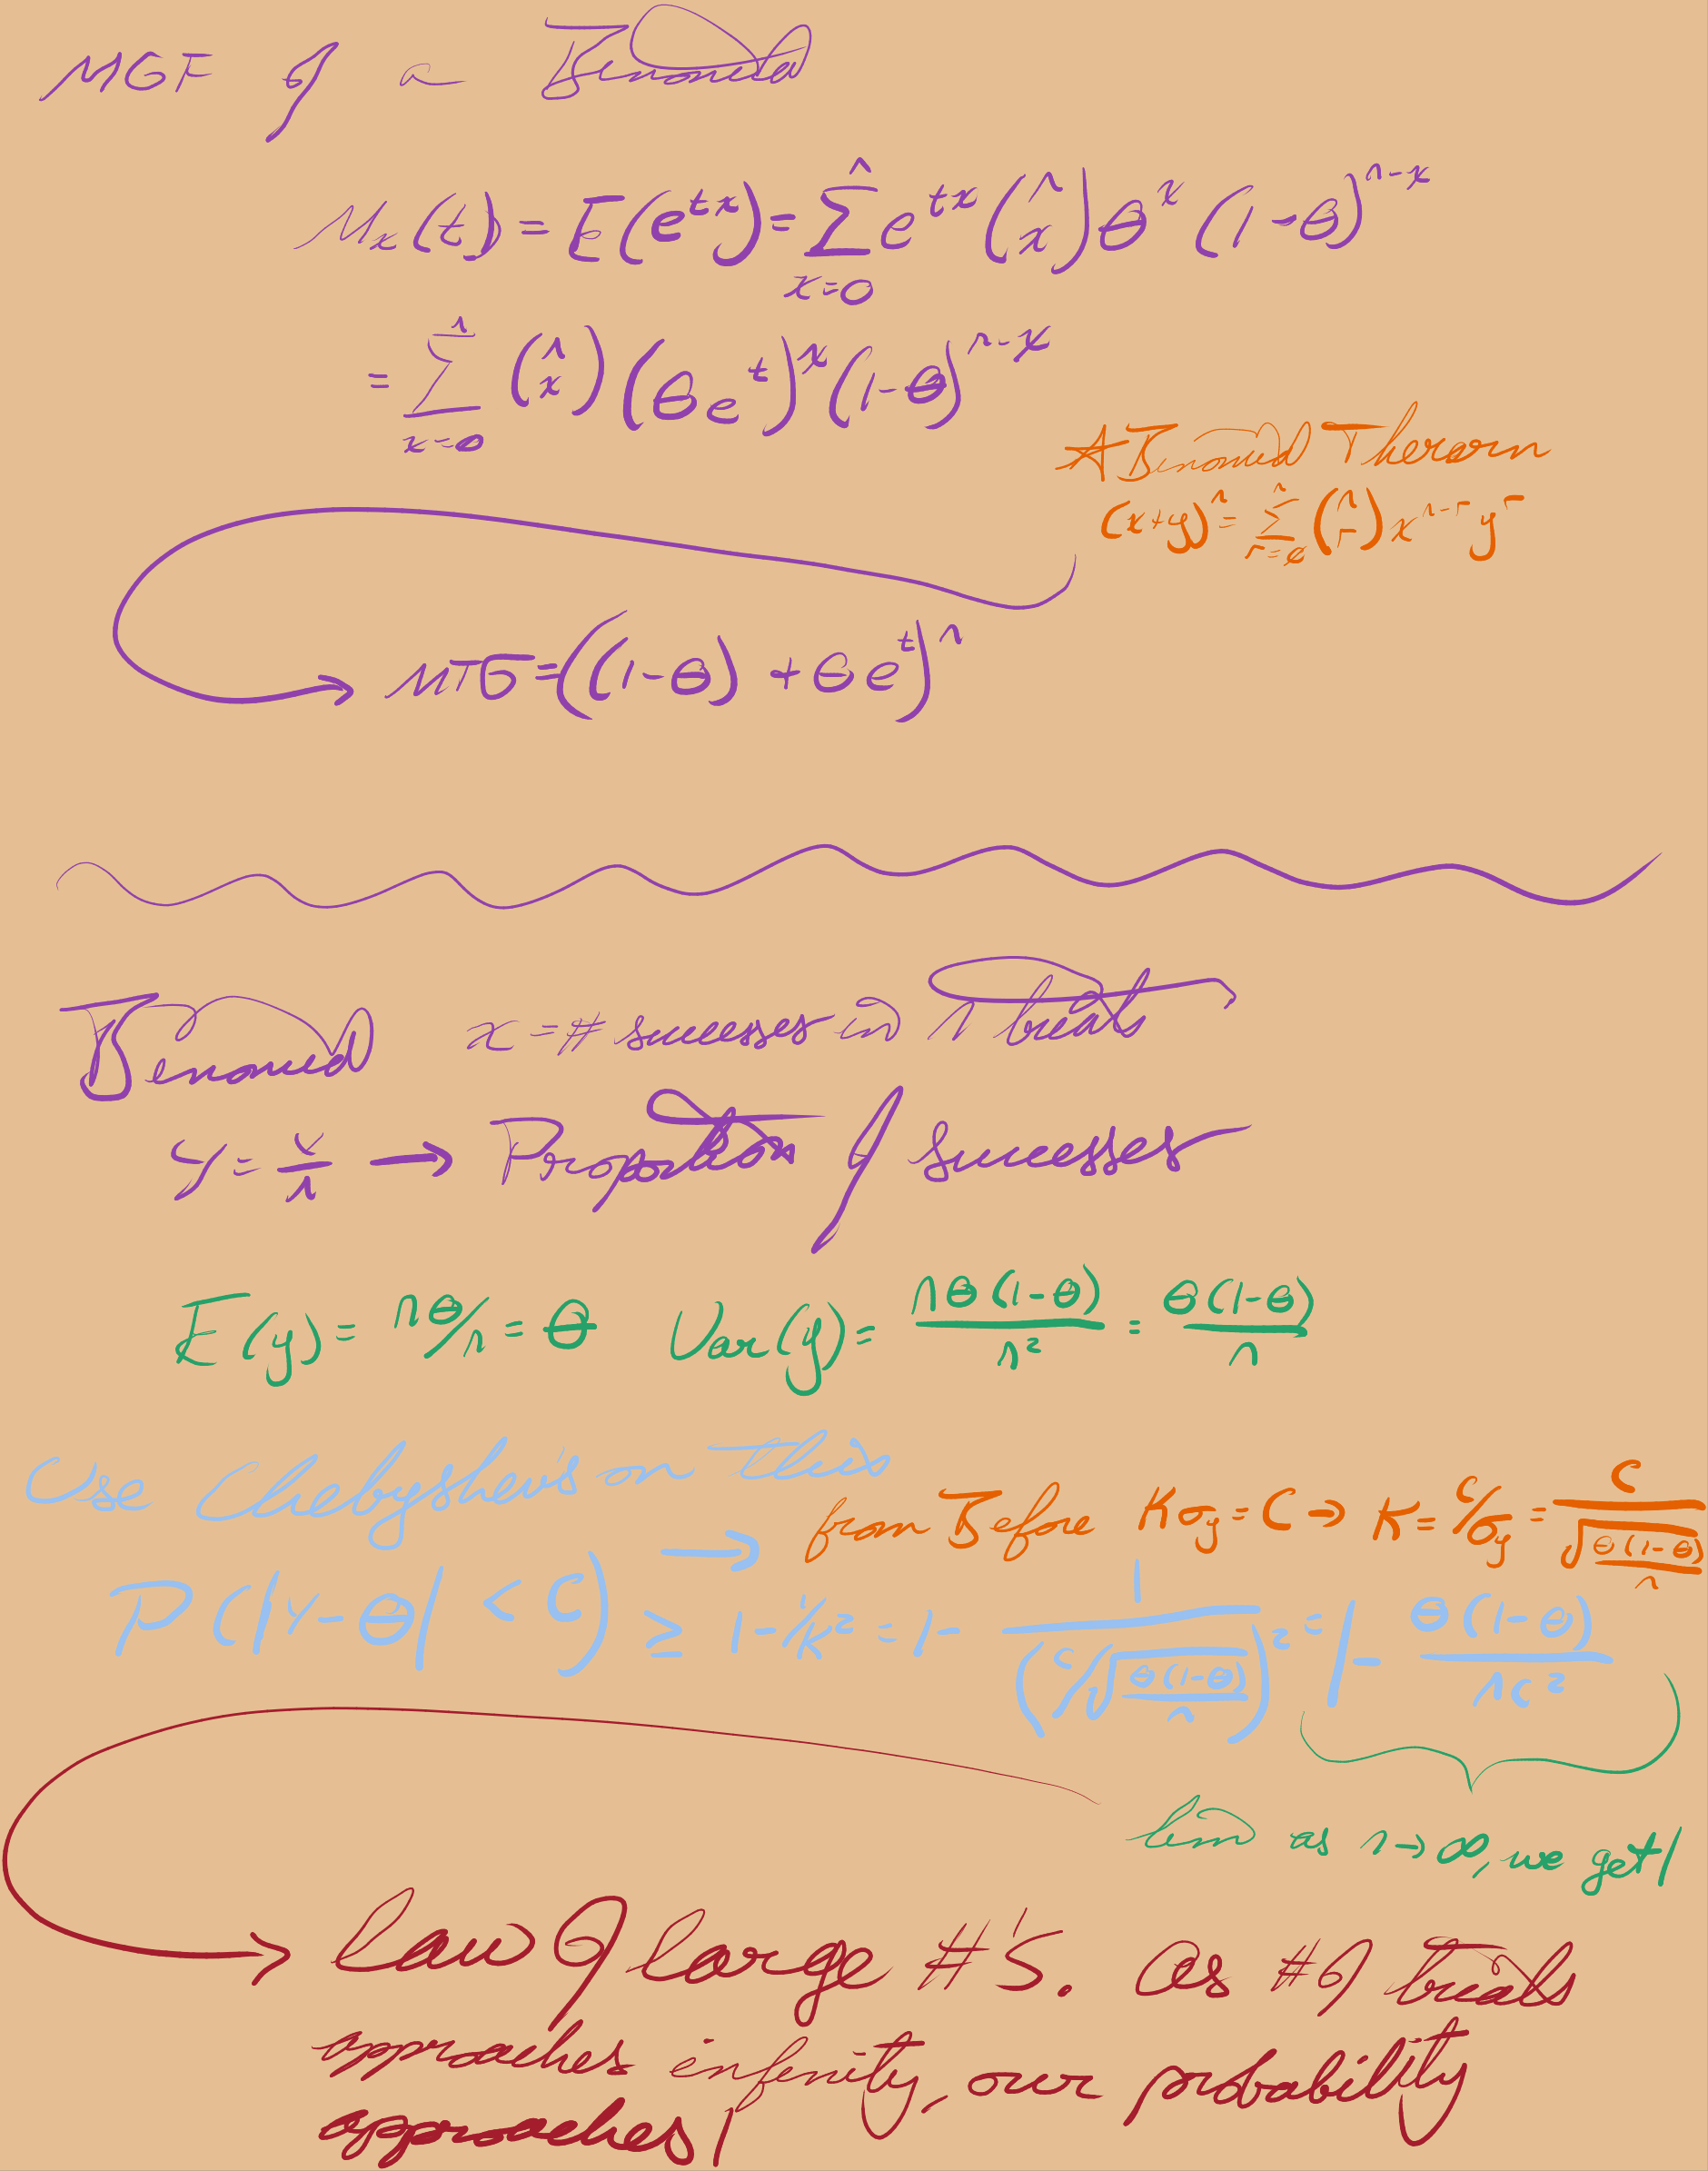 MGF of a Binomial
Mₓ(t) = E(e^{tx}) = Σ_{x=0}^{n} e^{tx} (n x) θ^x (1-θ)^{n-x}
= Σ_{x=0}^{n} (n x) (θe^t)^x (1-θ)^{n-x}
* Binomial Therom
(x+y)^n = Σ_{r=0}^{n} (n r) x^{n-r} y^r
→ MTG = ((1-θ) + θe^t)^n
Binomial x = # successes in n trials
y = x/n → Proportion of successes
E(y) = nθ/n = θ Var(y) = nθ(1-θ)/n² = θ(1-θ)/n
Use Chebyshev's on this
→ from Before Kσ_y = C → K = C/σ_y = C/√(θ(1-θ)/n)
P(|Y-θ| < C) ≥ 1 - 1/K² = 1 - 1/(C/√(θ(1-θ)/n))² = 1 - θ(1-θ)/nc²
lim as n→∞, we get 1
→ Law of large #'s. As # of trials
approaches infinity, our probability
approaches 1